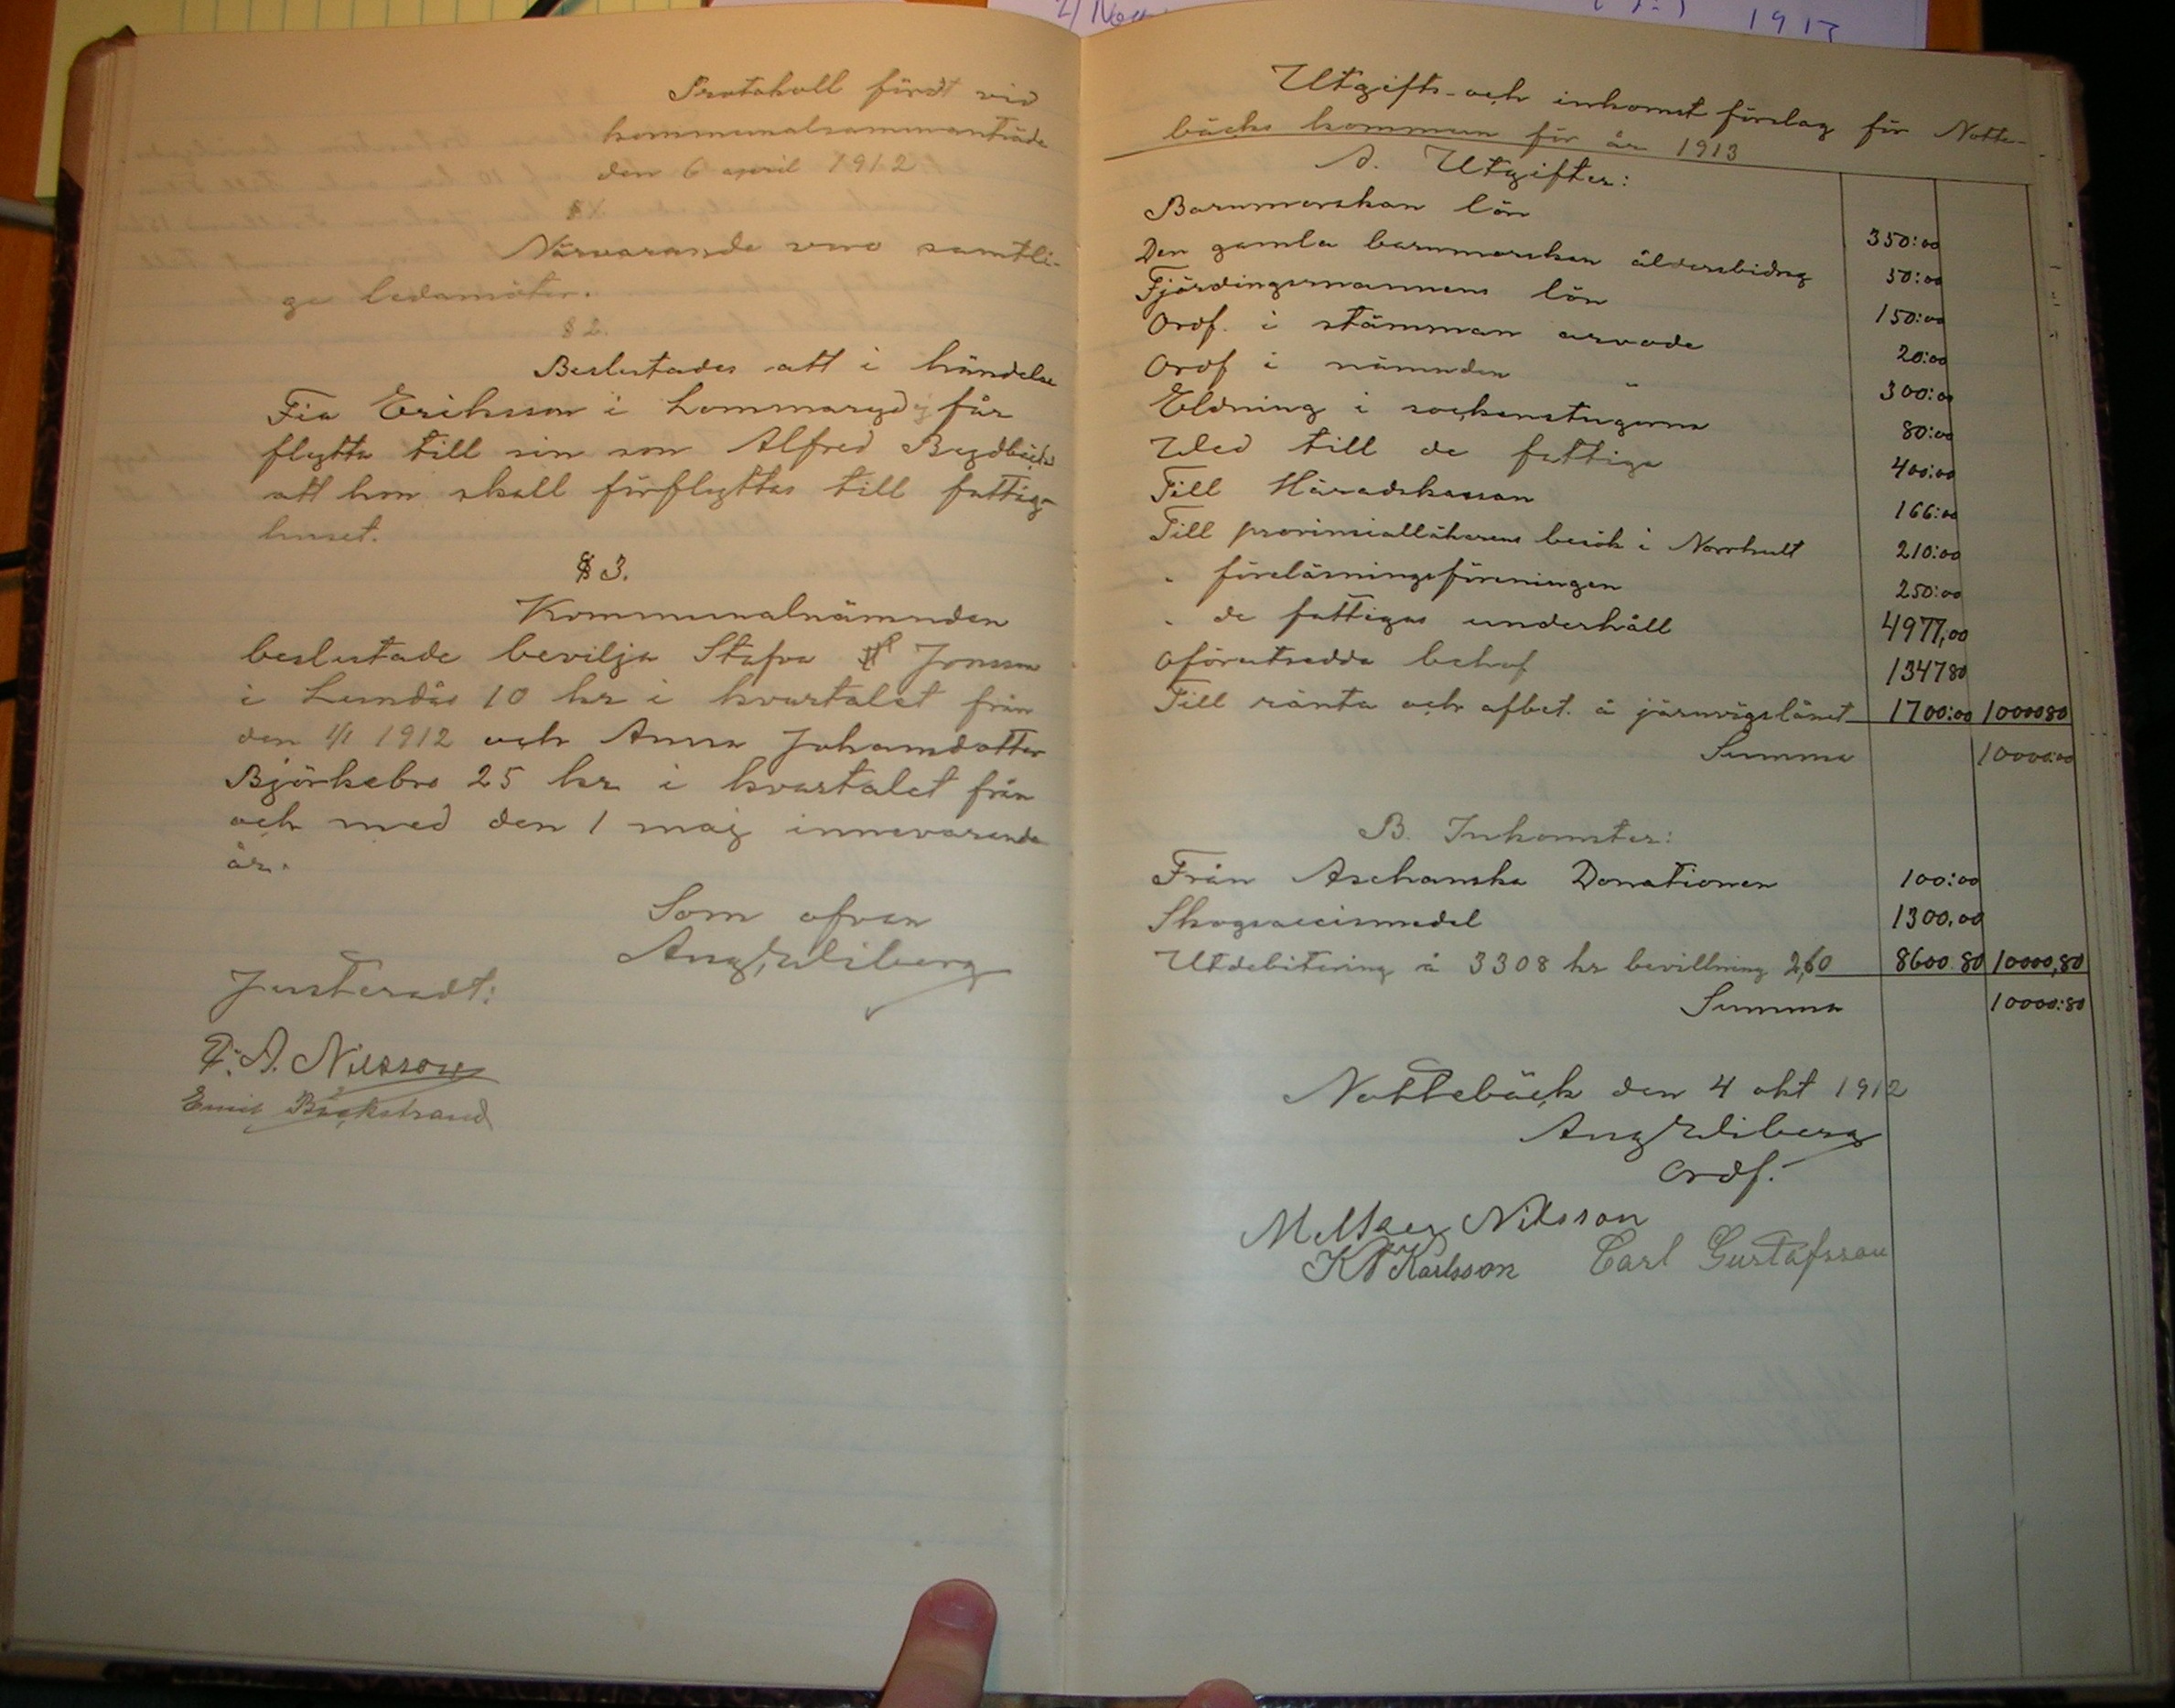 Protokoll fördt vid
kommunalsammanträde
den 6 april 1912
§ 1.
Närvarande voro samtli-
ga ledamöter.
§ 2.
Beslutades att i händelse
Fia Eriksson i Lommaryd ej får
flytta till sin son Alfred Bygdbäck
att hon skall förflyttas till fattig-
huset.
§ 3.
Kommunalnämnden
beslutade bevilja Stafva Jonsson
i Lundås 10 kr i kvartalet från
den 1/1 1912 och Anna Johansdotter
Björkebro 25 kr i kvartalet från
och med den 1 maj innevarande
år.
Som ofvan
Aug Wiberg
Justeradt:
P. A. Nilsson
Emil Bäckstrand
1913
Utgifts- och inkomst förslag för Notte-
bäcks kommun för år 1913
A. Utgifter:
Barnmorskan lön 350:00
Den gamla barnmorskan åldersbidrag 50:00
Fjärdingsmannens lön 150:00
Ordf. i stämman arvode 20:00
Ordf i nämnden " 300:00
Eldning i sockenstugorna 80:00
Wed till de fattiga 400:00
Till Häradskassan 166:00
Till provinsialläkarens besök i Norrhult 210:00
" föreläsningsföreningen 250:00
" de fattigas underhåll 4977,00
Oförutsedda behof 1347 80
Till ränta och afbet. å järnvägslånet 1700:00 10000 80
Summa 10000:00
B. Inkomster:
Från Aschanska Donationen 100:00
Skogsaccismedel 1300,00
Utdebitering å 3308 kr bevillning 2,60 8600 80 10000,80
Summa 10000:80
Nottebäck den 4 okt 1912
Aug Wiberg
Ordf.
Nilsson
K Karlsson Carl Gustafsson